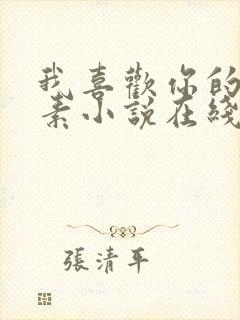 我喜歡你的
素小說在綫
張清平